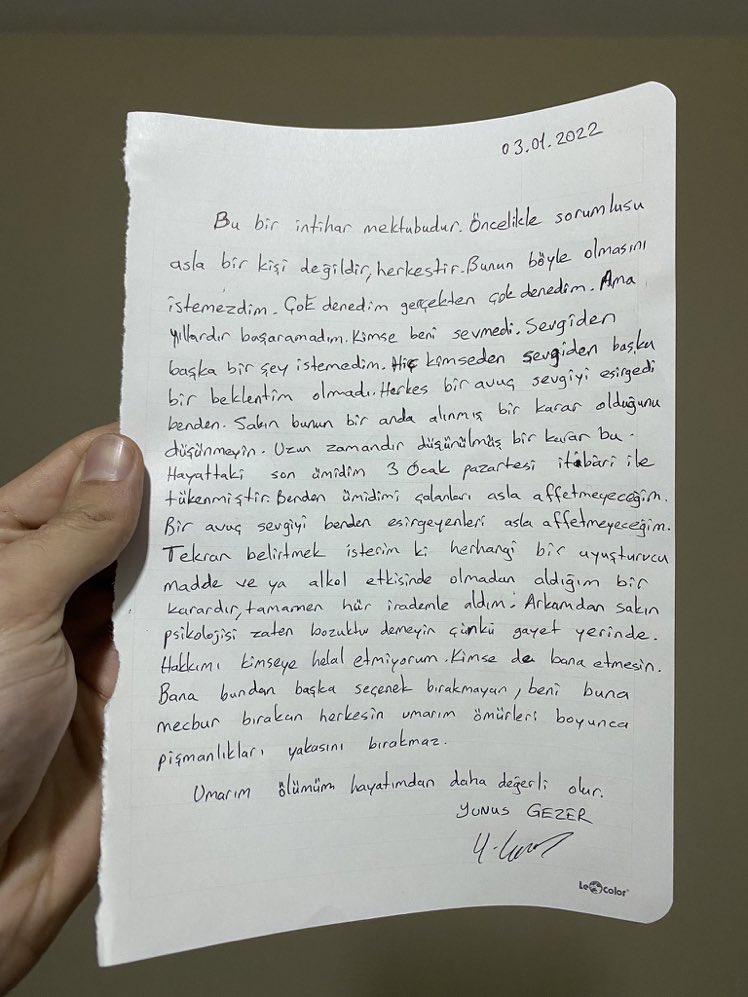 03.01.2022
Bu bir intihar mektubudur. Öncelikle sorumlusu
asla bir kişi değildir, herkestir. Bunun böyle olmasını
istemezdim. Çok denedim gerçekten çok denedim. Ama
yıllardır başaramadım. Kimse beni sevmedi. Sevgiden
başka bir şey istemedim. Hiç kimseden sevgiden başka
bir beklentim olmadı. Herkes bir avuç sevgiyi esirgedi
benden. Sakın bunun bir anda alınmış bir karar olduğunu
düşünmeyin. Uzun zamandır düşünülmüş bir karar bu.
Hayattaki son ümidim 3 Ocak pazartesi itibâri ile
tükenmiştir. Benden ümidimi çalanları asla affetmeyeceğim.
Bir avuç sevgiyi benden esirgeyenleri asla affetmeyeceğim.
Tekrar belirtmek isterim ki herhangi bir uyuşturucu
madde ve ya alkol etkisinde olmadan aldığım bir
karardır, tamamen hür irademle aldım. Arkamdan sakın
psikolojisi zaten bozuktu demeyin çünkü gayet yerinde.
Hakkımı kimseye helal etmiyorum. Kimse de bana etmesin.
Bana bundan başka seçenek bırakmayan, beni buna
mecbur bırakan herkesin umarım ömürleri boyunca
pişmanlıkları yakasını bırakmaz.
Umarım ölümüm hayatımdan daha değerli olur.
YUNUS GEZER
Le color